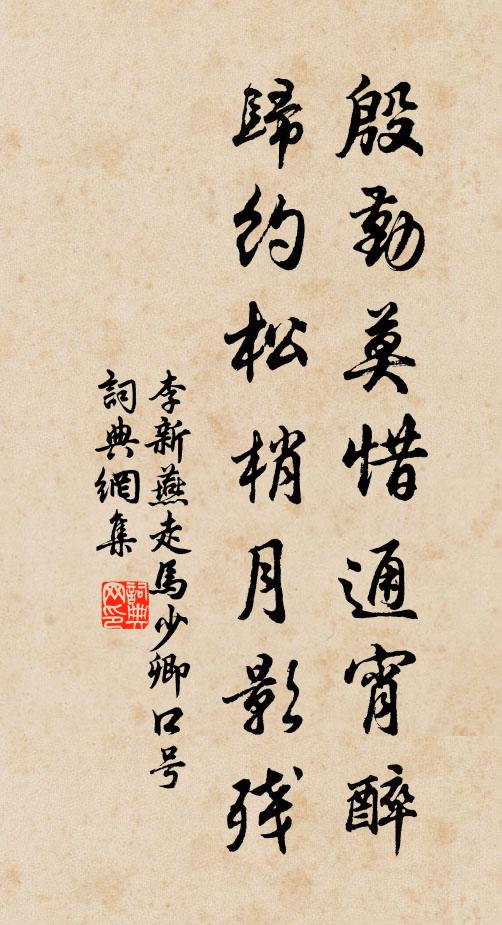 殷勤莫惜通宵醉
歸約松梢月影殘
李新燕走馬少卿口号
詞典網集
詞典网印